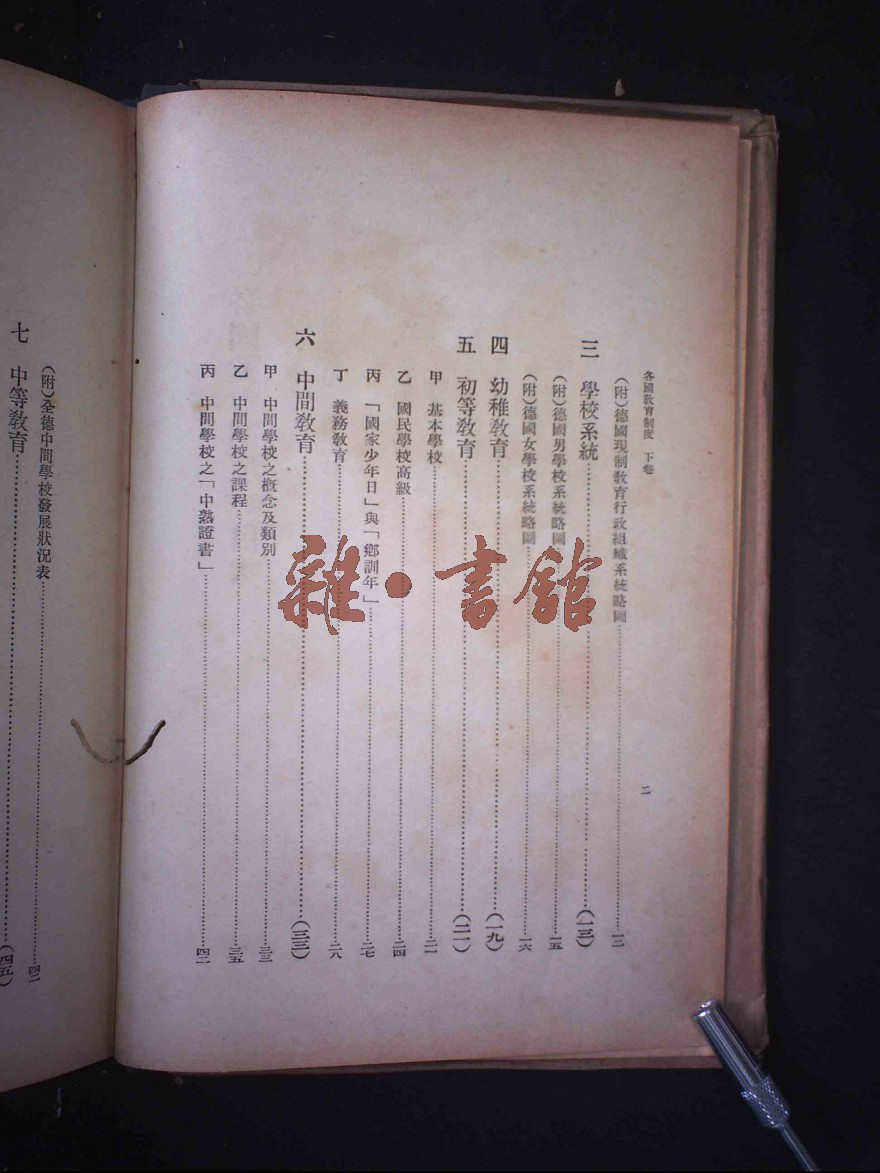 各國教育制度 下卷
二
(附)德國現制教育行政組織系統略圖……一二
三 學校系統……(一三)
(附)德國男學校系統略圖……一五
(附)德國女學校系統略圖……一六
四 幼稚教育……(一九)
五 初等教育……(二一)
甲 基本學校……二一
乙 國民學校高級……二四
丙 「國家少年日」與「鄉訓年」……二七
丁 義務教育……二八
六 中間教育……(三三)
甲 中間學校之概念及類別……三三
乙 中間學校之課程……三五
丙 中間學校之「中熟證書」……四二
(附)全德中間學校發展狀況表……四二
七 中等教育……(四五)
雜·書館